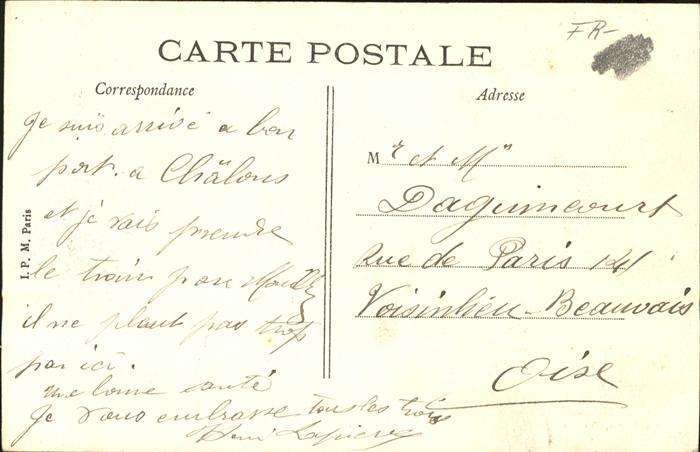 FR-
CARTE POSTALE
Correspondance
Adresse
Je suis arrivé a bon
port. a Châlons
et je vais prendre
le train pour
il ne pleut pas trop
par ici.
une bonne santé
Je vous embrasse tous les trois
Henri Lapierre
I. P. M. Paris
Mr et Mm
Daguincourt
Rue de Paris 121
Voisinlieu-Beauvais
Oise